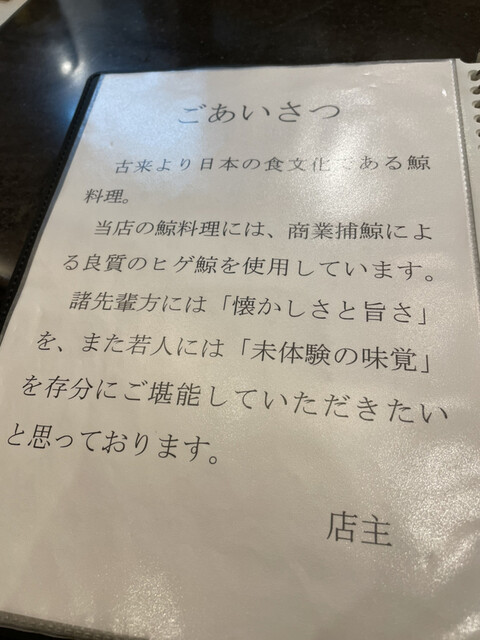 ごあいさつ
古来より日本の食文化である鯨
料理。
当店の鯨料理には、商業捕鯨によ
る良質のヒゲ鯨を使用しています。
諸先輩方には「懐かしさと旨さ」
を、また若人には「未体験の味覚」
を存分にご堪能していただきたい
と思っております。
店主